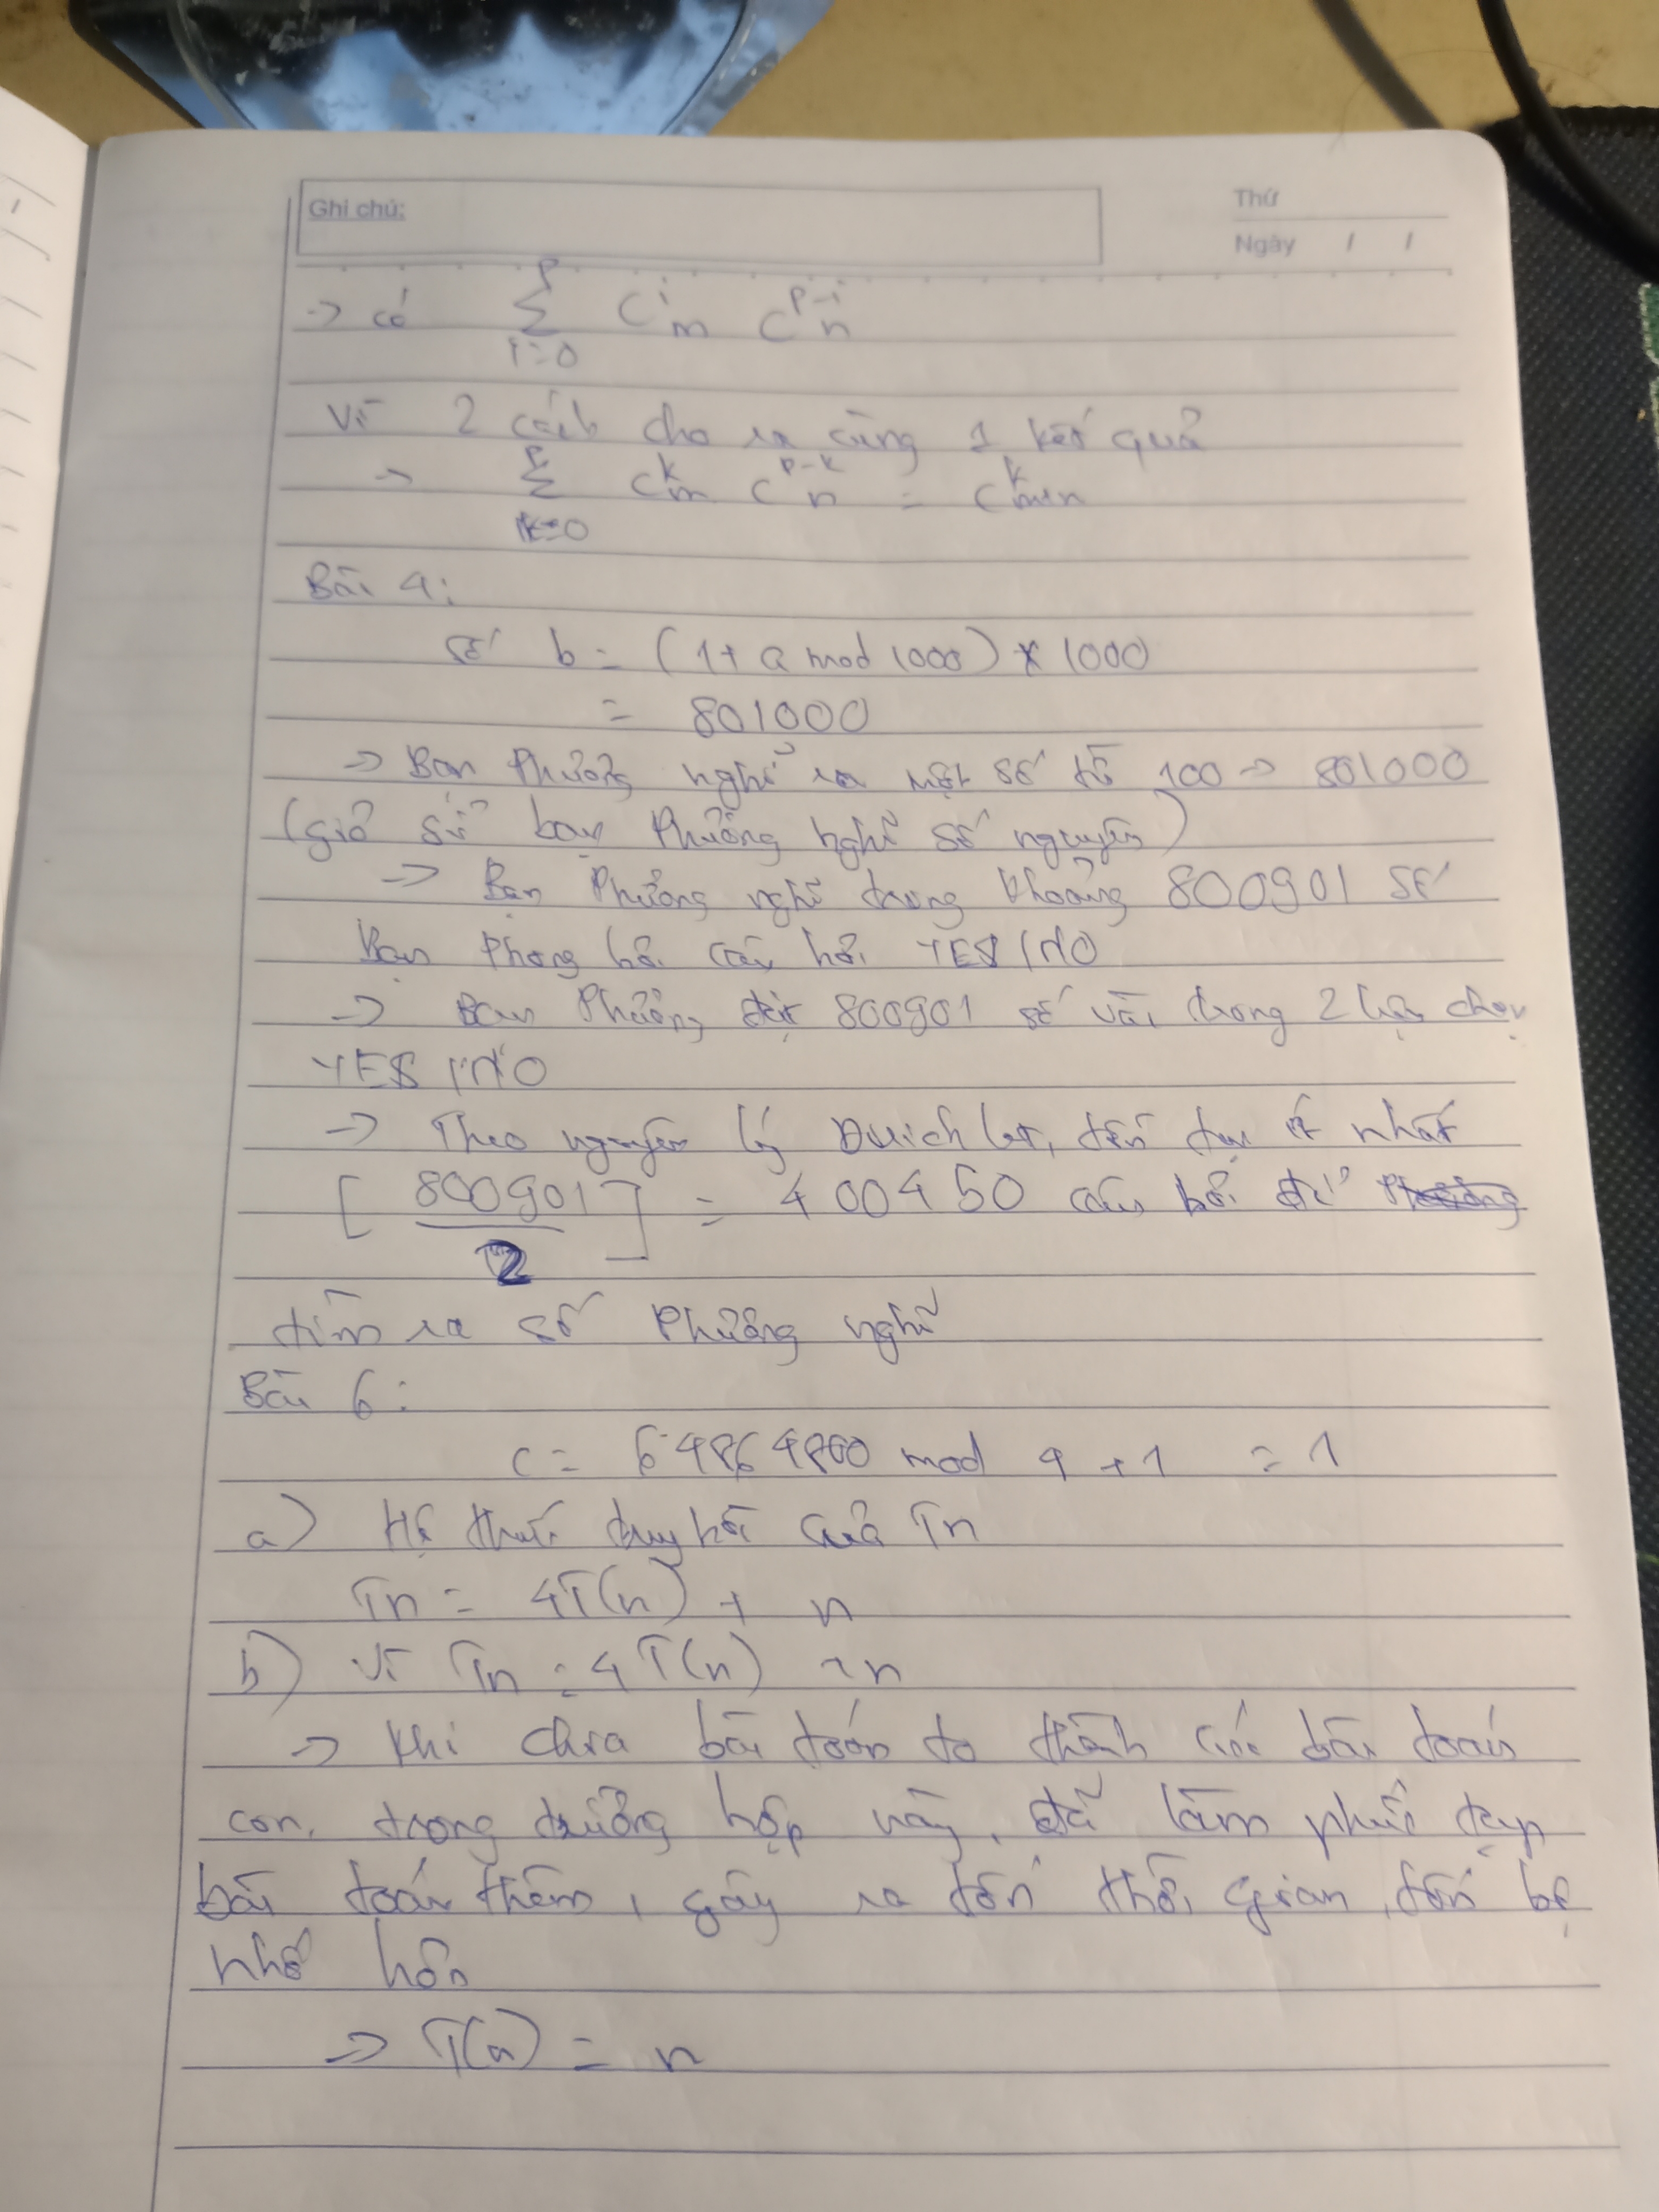 Ghi chú:
Thứ
Ngày / /
→ có \sum_{i=0}^{p} C_m^i C_n^{p-i}
Vì 2 cách cho ra cùng 1 kết quả
→ \sum_{k=0}^{p} C_m^k C_n^{p-k} = C_{m+n}^k
Bài 4:
Số b = (1 + a mod 1000) * 1000
= 801000
→ Bạn Phưởng nghĩ ra một số từ 100 → 801000
(giả sử bạn Phưởng nghĩ số nguyên)
→ Bạn Phưởng nghĩ trong khoảng 800901 số
Bạn Phong hỏi câu hỏi YES/NO
→ Bạn Phưởng đặt 800901 số vào trong 2 lựa chọn
YES/NO
→ Theo nguyên lý Dirichlet, tồn tại ít nhất
[800901/2] = 400450 câu hỏi để
tìm ra số Phưởng nghĩ
Bài 6:
c = 64864800 mod 4 + 1 = 1
a) Hệ thức truy hồi của Tn
Tn = 4T(n) + n
b) Vì Tn = 4T(n) + n
→ Khi chia bài toán to thành các bài toán
con, trong trường hợp này, đã làm phức tạp
bài toán thêm, gây ra tốn thời gian, tốn bộ
nhớ hơn
→ T(n) = n